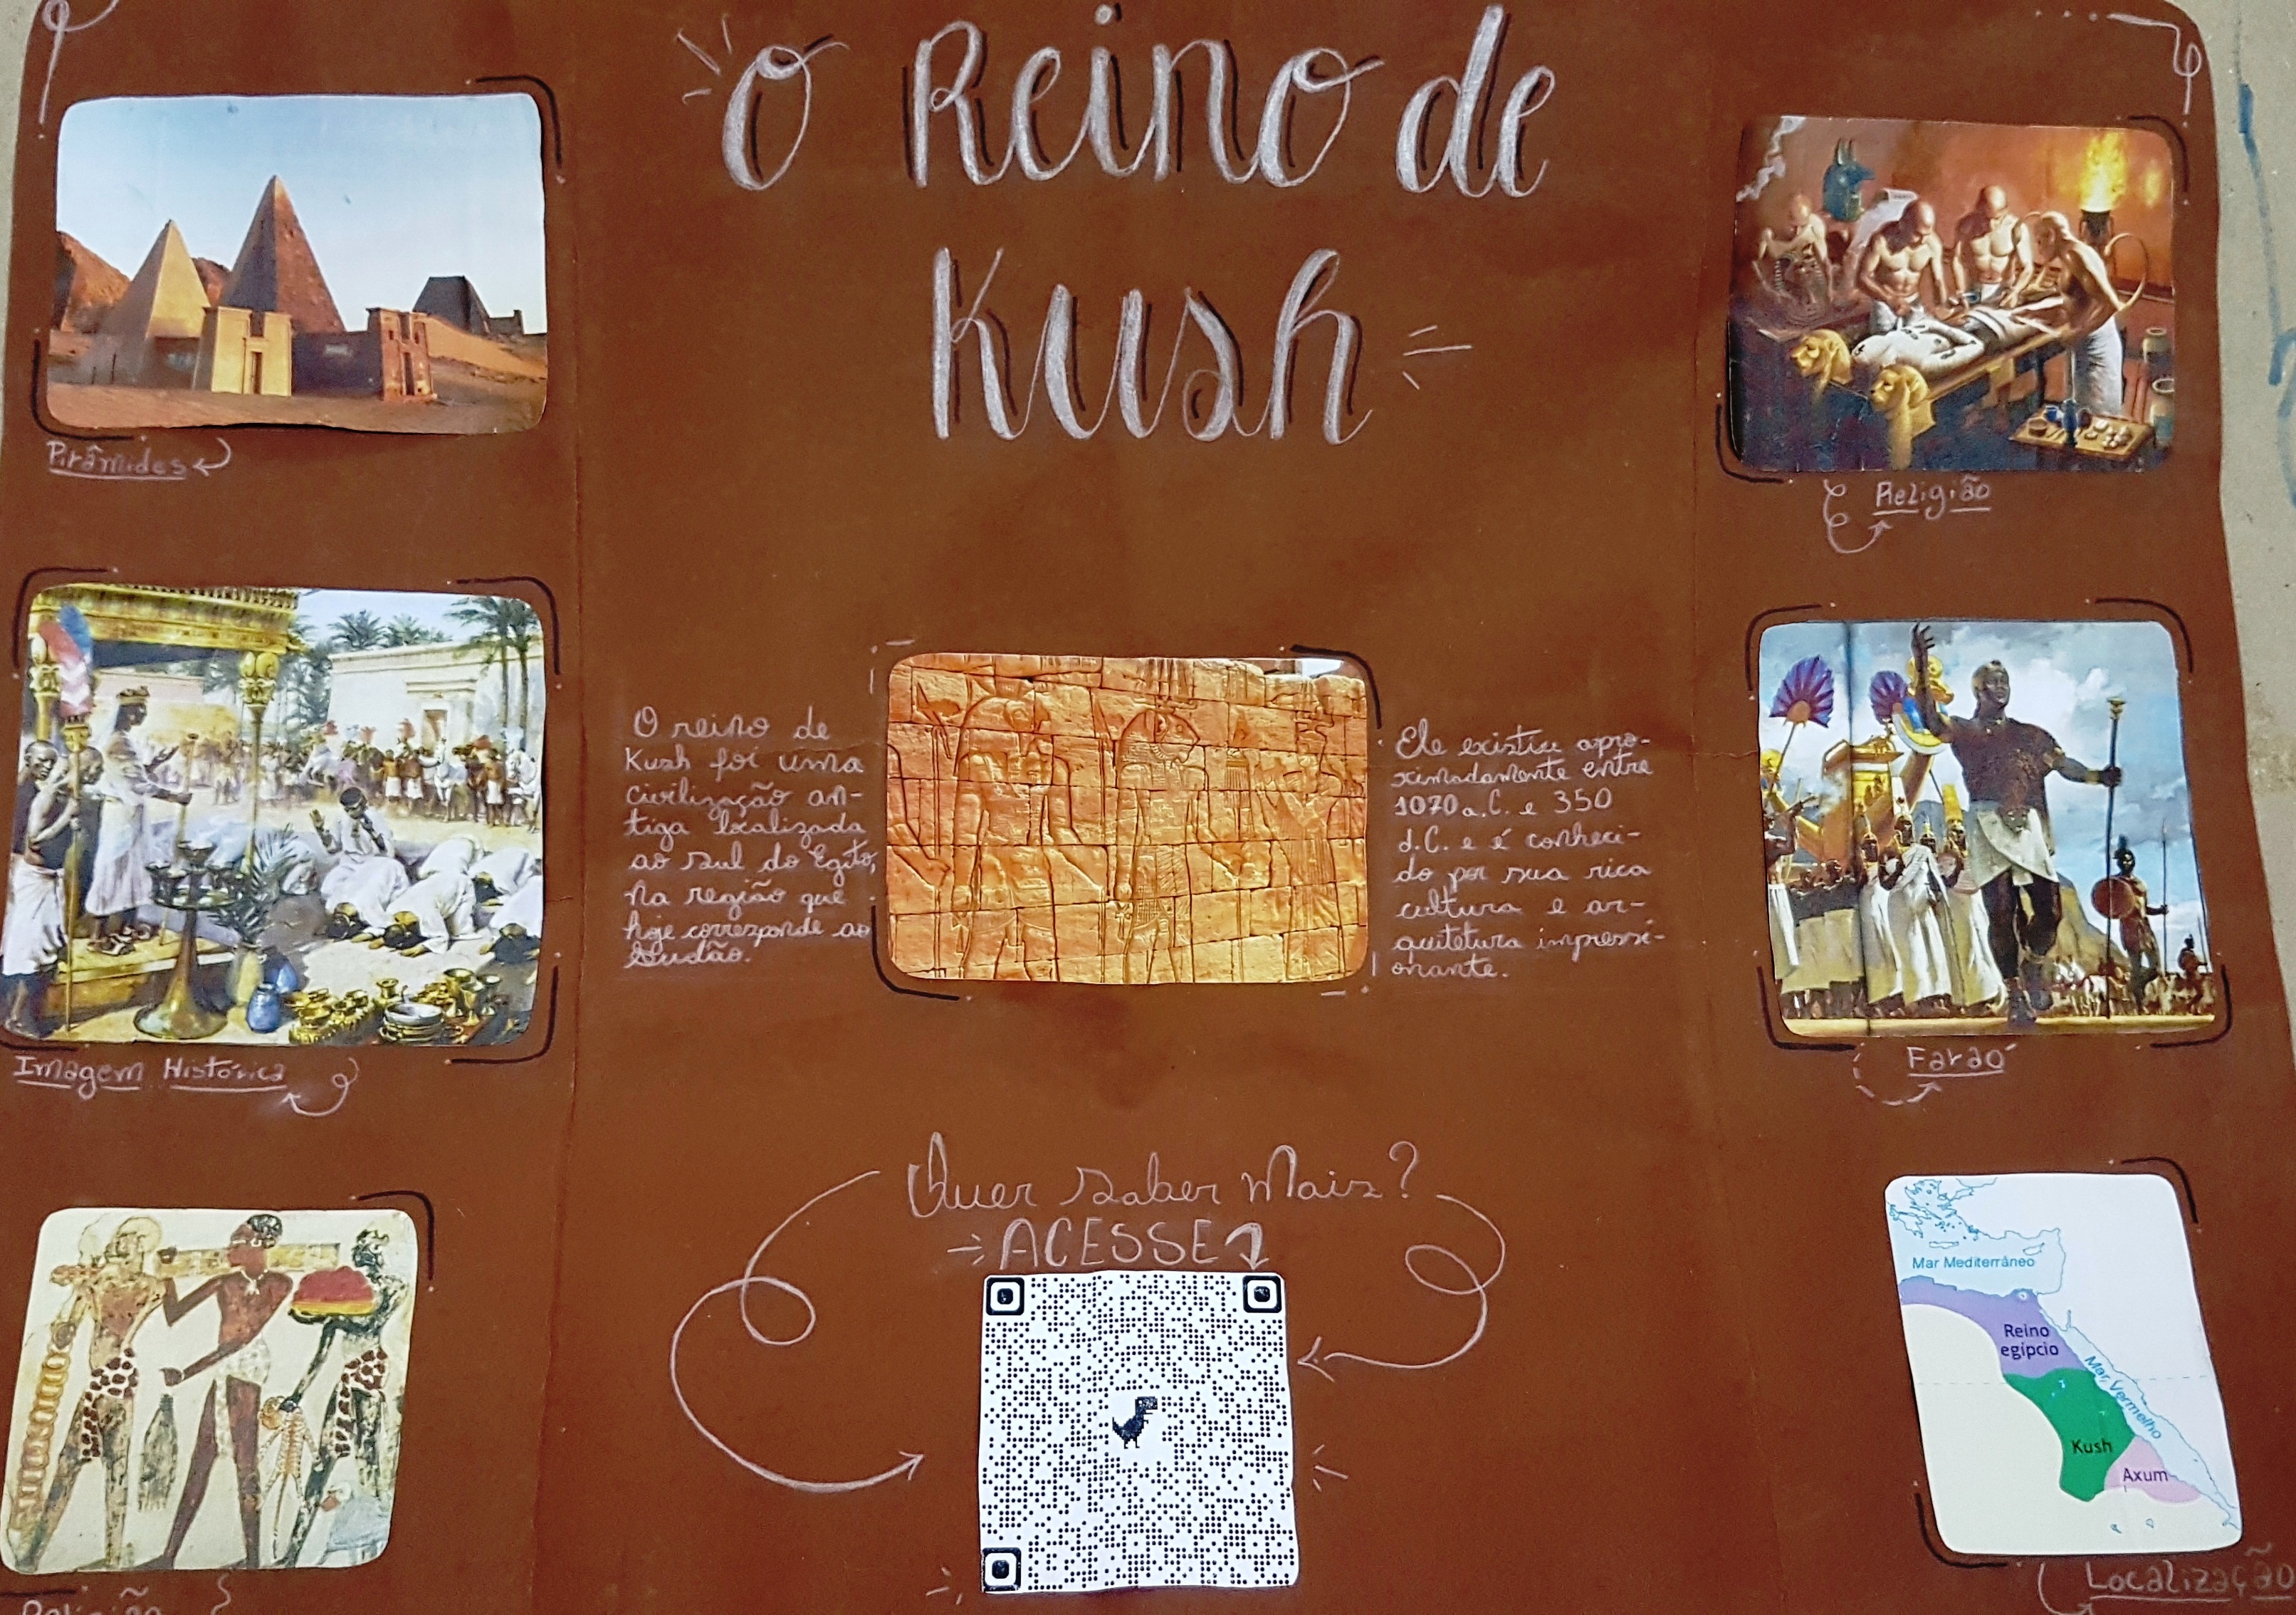 O Reino de
Kush
Pirâmides
Religião
Imagem Histórica
O reino de
Kush foi uma
civilização an-
tiga localizada
ao sul do Egito,
na região que
hoje corresponde ao
Sudão.
Ele existiu apro-
ximadamente entre
1070 a.C. e 350
d.C. e é conheci-
do por sua rica
cultura e ar-
quitetura impressi-
onante.
Faraó
Quer saber Mais?
ACESSE
Mar Mediterrâneo
Reino
egípcio
Mar Vermelho
Kush
Axum
Religião
Localização